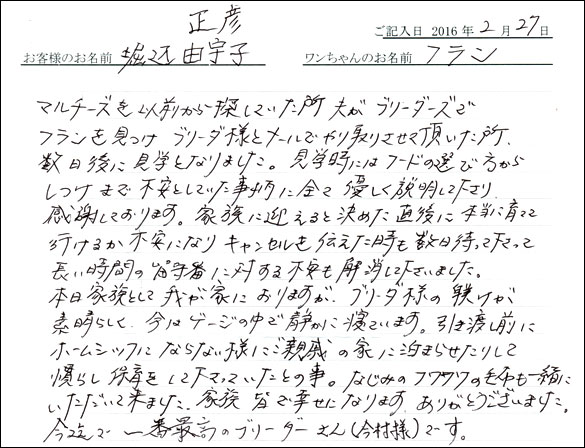 正彦
ご記入日 2016年 2月 27日
お客様のお名前 堀之内 由宇子 ワンちゃんのお名前 フラン
マルチーズを以前から探していた所 夫がブリーダーズで
フランを見つけ ブリーダ様とメールでやり取りさせて頂いた所、
数日後に見学となりました。見学時にはフードの選び方から
しつけまで不安としていた事柄に全て優しく説明して下さり
感謝しております。家族に迎えると決めた直後に本当に育てて
行けるか不安になり キャンセルを伝えた時も数日待って下さって
長い時間の留守番に対する不安も解消して下さいました。
本日家族として我が家におりますが、ブリーダ様の躾けが
素晴らしく、今はゲージの中で静かに寝ています。引き渡し前に
ホームシックにならない様にご親戚の家に泊まらせたりして
慣らし保育をして下さっていたとの事。なじみのフワフワの毛布も一緒に
いただいて来ました。家族皆で幸せになります。ありがとうございました。
今迄で一番最高のブリーダーさん(今村様)です。